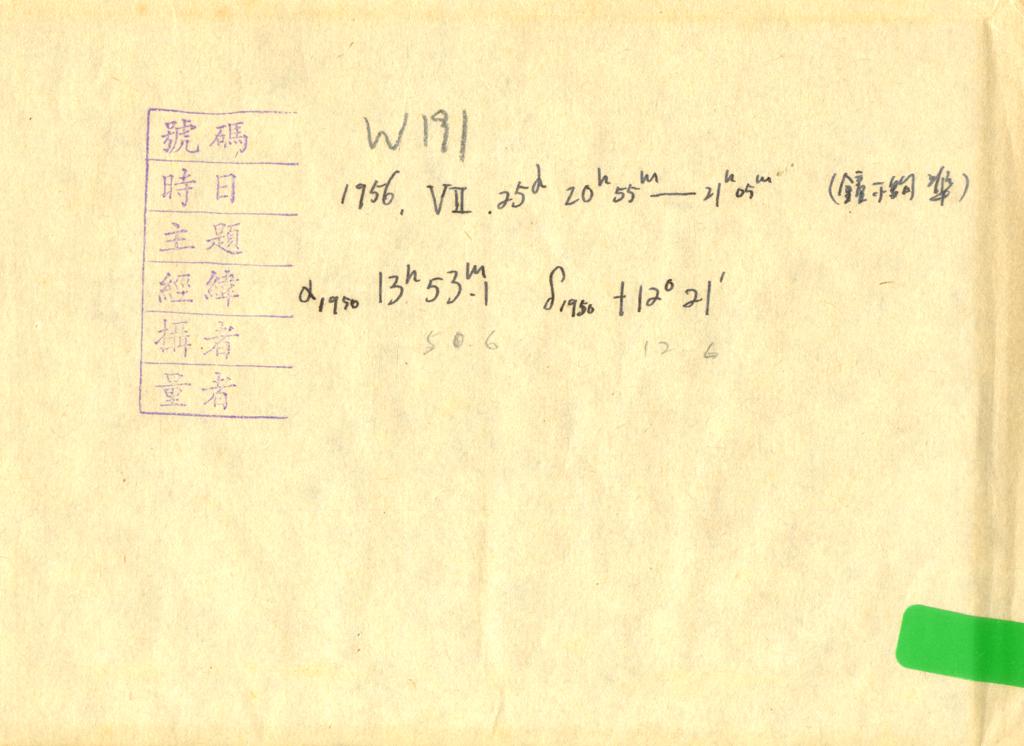 號碼 W191
時日 1956. VII. 25ᵈ 20ʰ 55ᵐ — 21ʰ 05ᵐ (鐘不夠準)
主題
經緯 α₁₉₅₀ 13ʰ 53ᵐ.1 δ₁₉₅₀ +12° 21′
50.6 12 6
攝者
量者